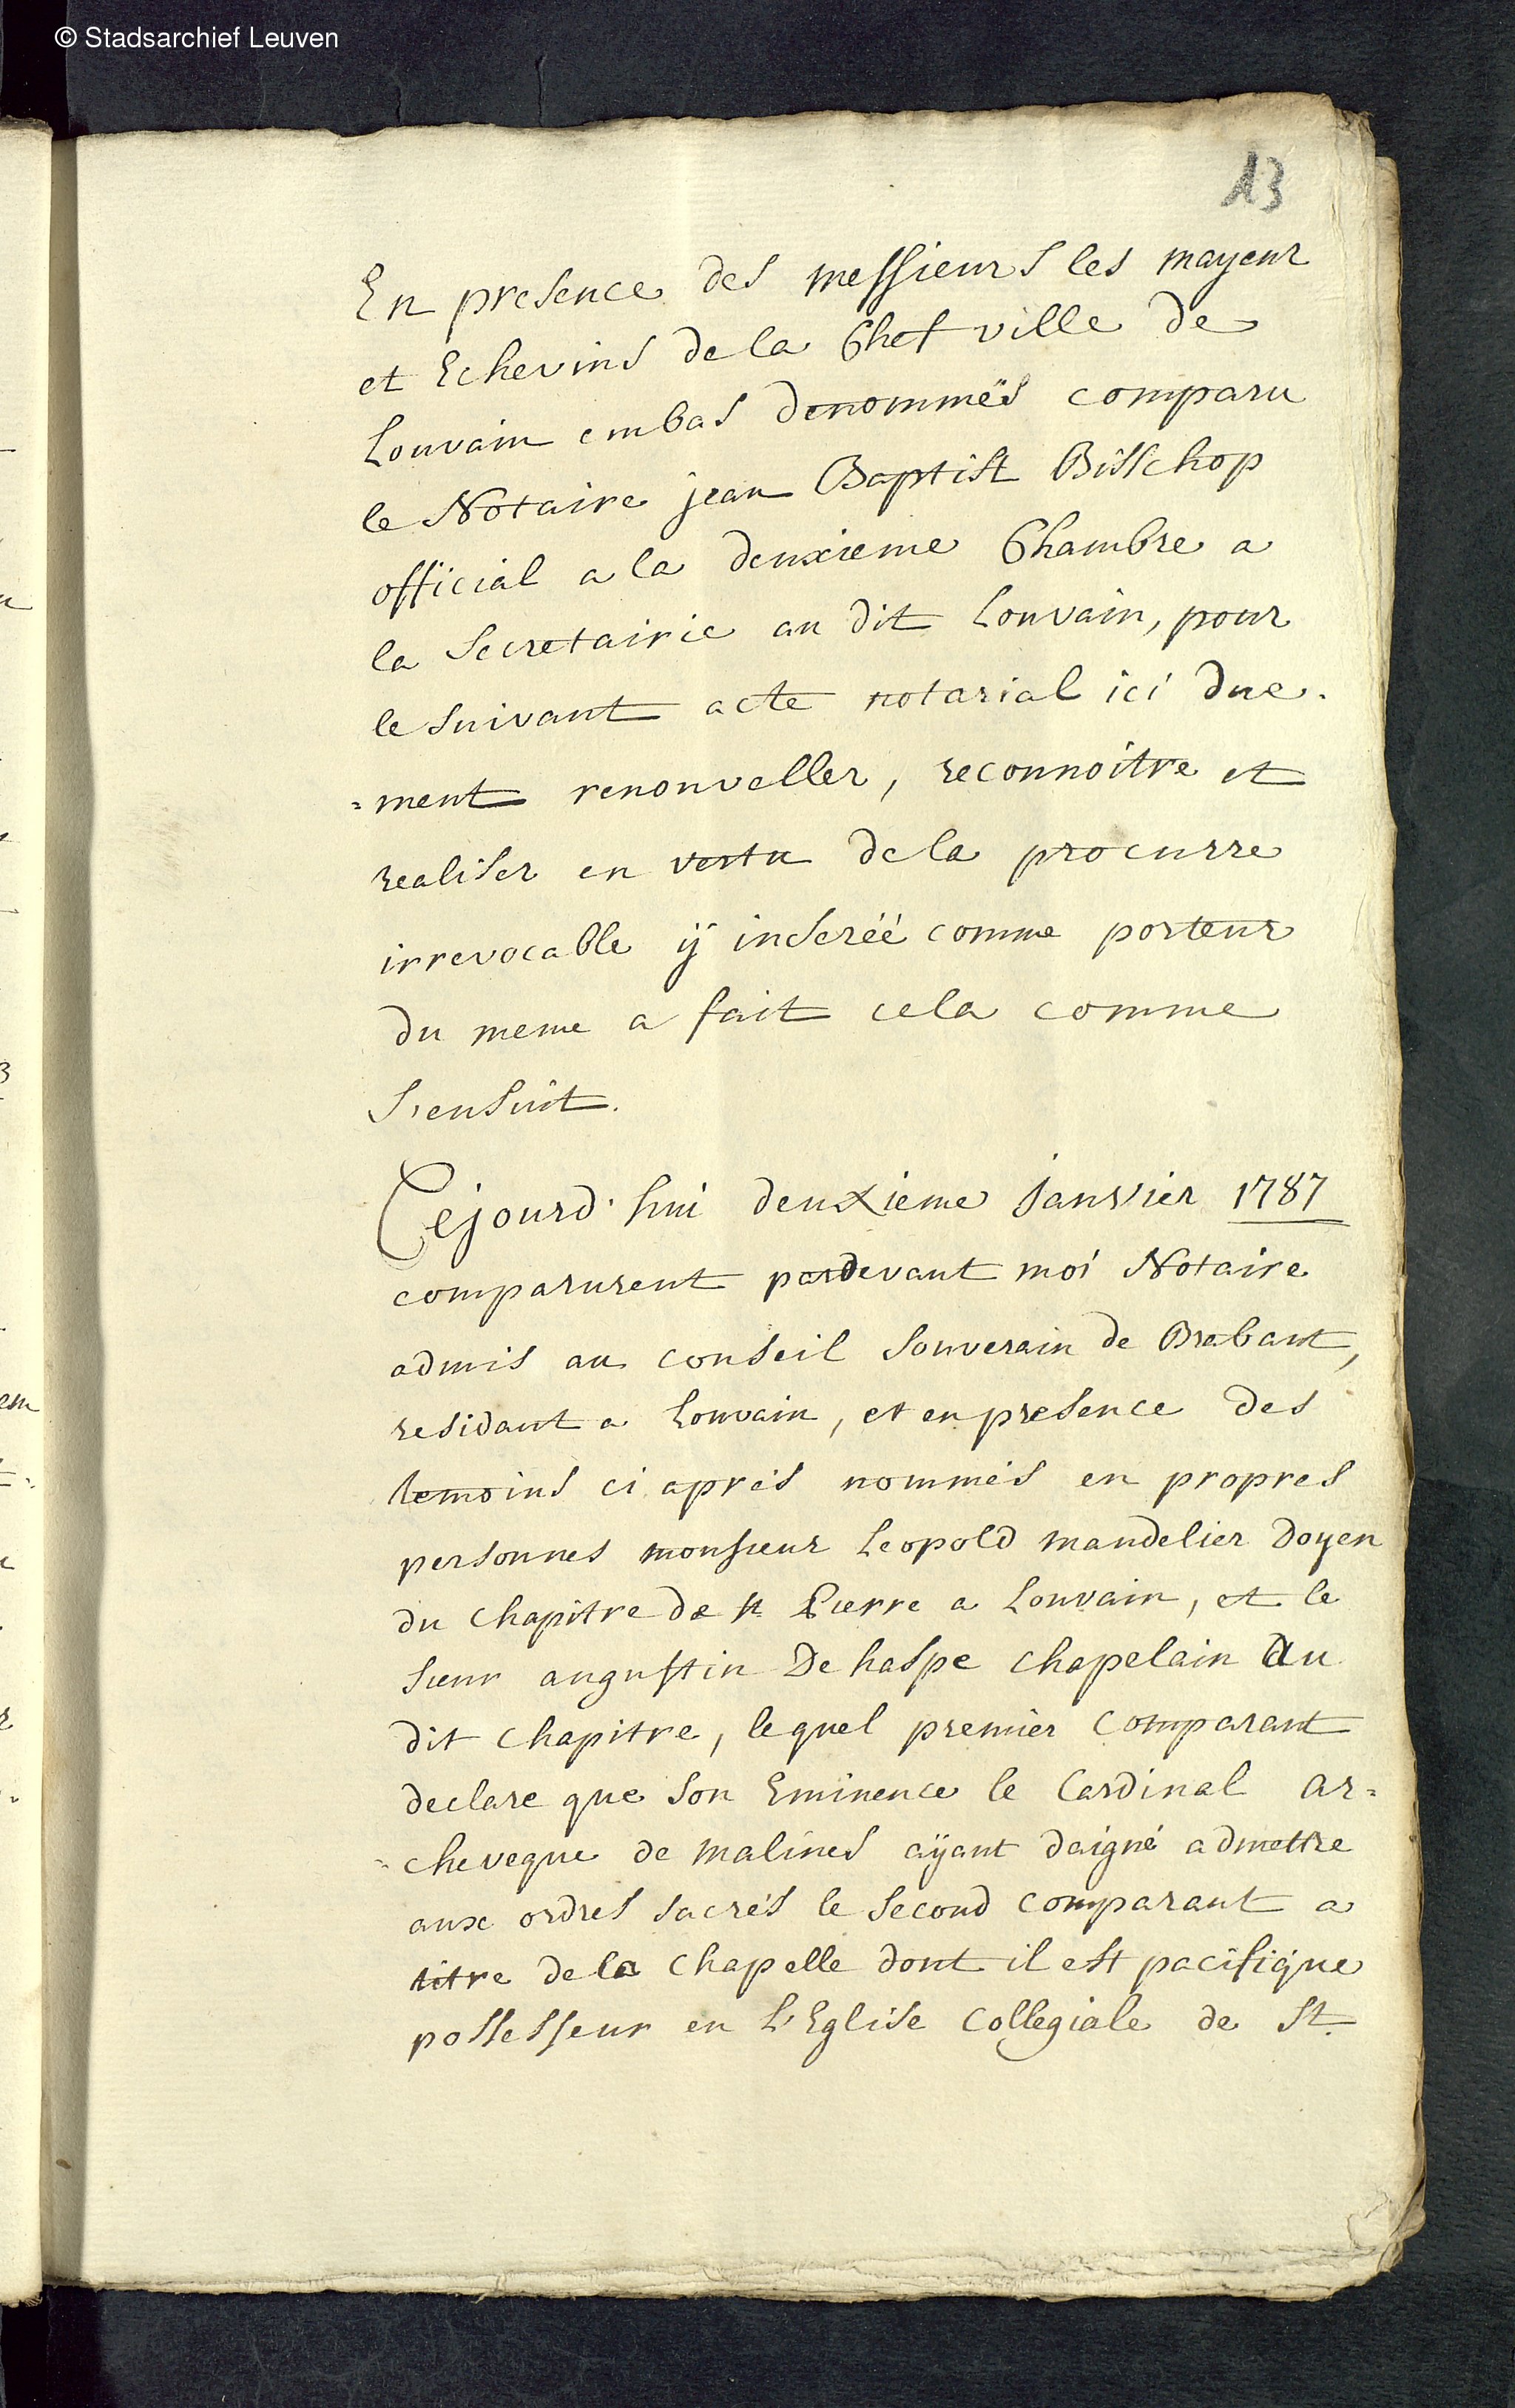 © Stadsarchief Leuven
13
En presence des messieurs les mayeur
et Echevins de la Chef ville de
Louvain embas denommés comparu
le Notaire jean Baptist Bisschop
official a la deuxieme Chambre a
la Secretairie au dit Louvain, pour
le suivant acte notarial ici due-
=ment renouveller, reconnoitre et
realiser en vertu de la procurre
irrevocable ÿ inseréé comme porteur
du meme a fait cela comme
s'ensuit.
Cejourd'hui deuxieme janvier 1787
comparurent pardevant moi Notaire
admis au conseil Souverain de Brabant,
residant a Louvain, et en presence des
temoins ci aprés nommés en propres
personnes monsieur Leopold mandelier Doyen
du chapitre de st Pierre a Louvain, et le
sieur augustin De haspe chapelain du
dit chapitre, lequel premier comparant
declare que son Eminence le Cardinal ar=
=cheveque de malines aÿant daigné admettre
aux ordres sacrés le second comparant a
titre de la chapelle dont il est pacifique
possesseur en L'Eglise Collegiale de St.